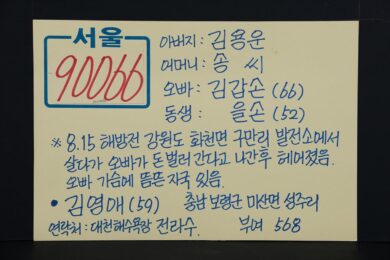 서울
90066
아버지: 김용운
어머니: 송 씨
오빠: 김갑손 (66)
동생: 을손 (52)
※ 8.15 해방전 강원도 화천면 구만리 발전소에서
살다가 오빠가 돈벌러 간다고 나간후 헤어졌음.
오빠 가슴에 뜸뜬 자국 있음.
• 김영애 (59) 충남 보령군 마산면 성주리
연락처: 대천해수욕장 전라수. 부여 568